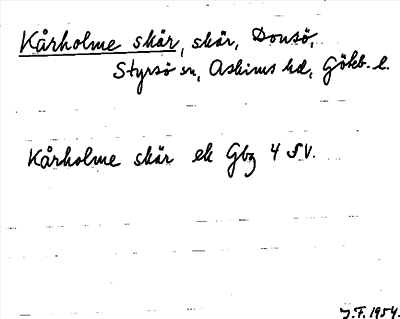 Kårholme skär, skär, Donsö,
Styrsö sn, Askims hd, Götb. l.
Kårholme skär ek Gbg 4 SV.
J.F. 1954.